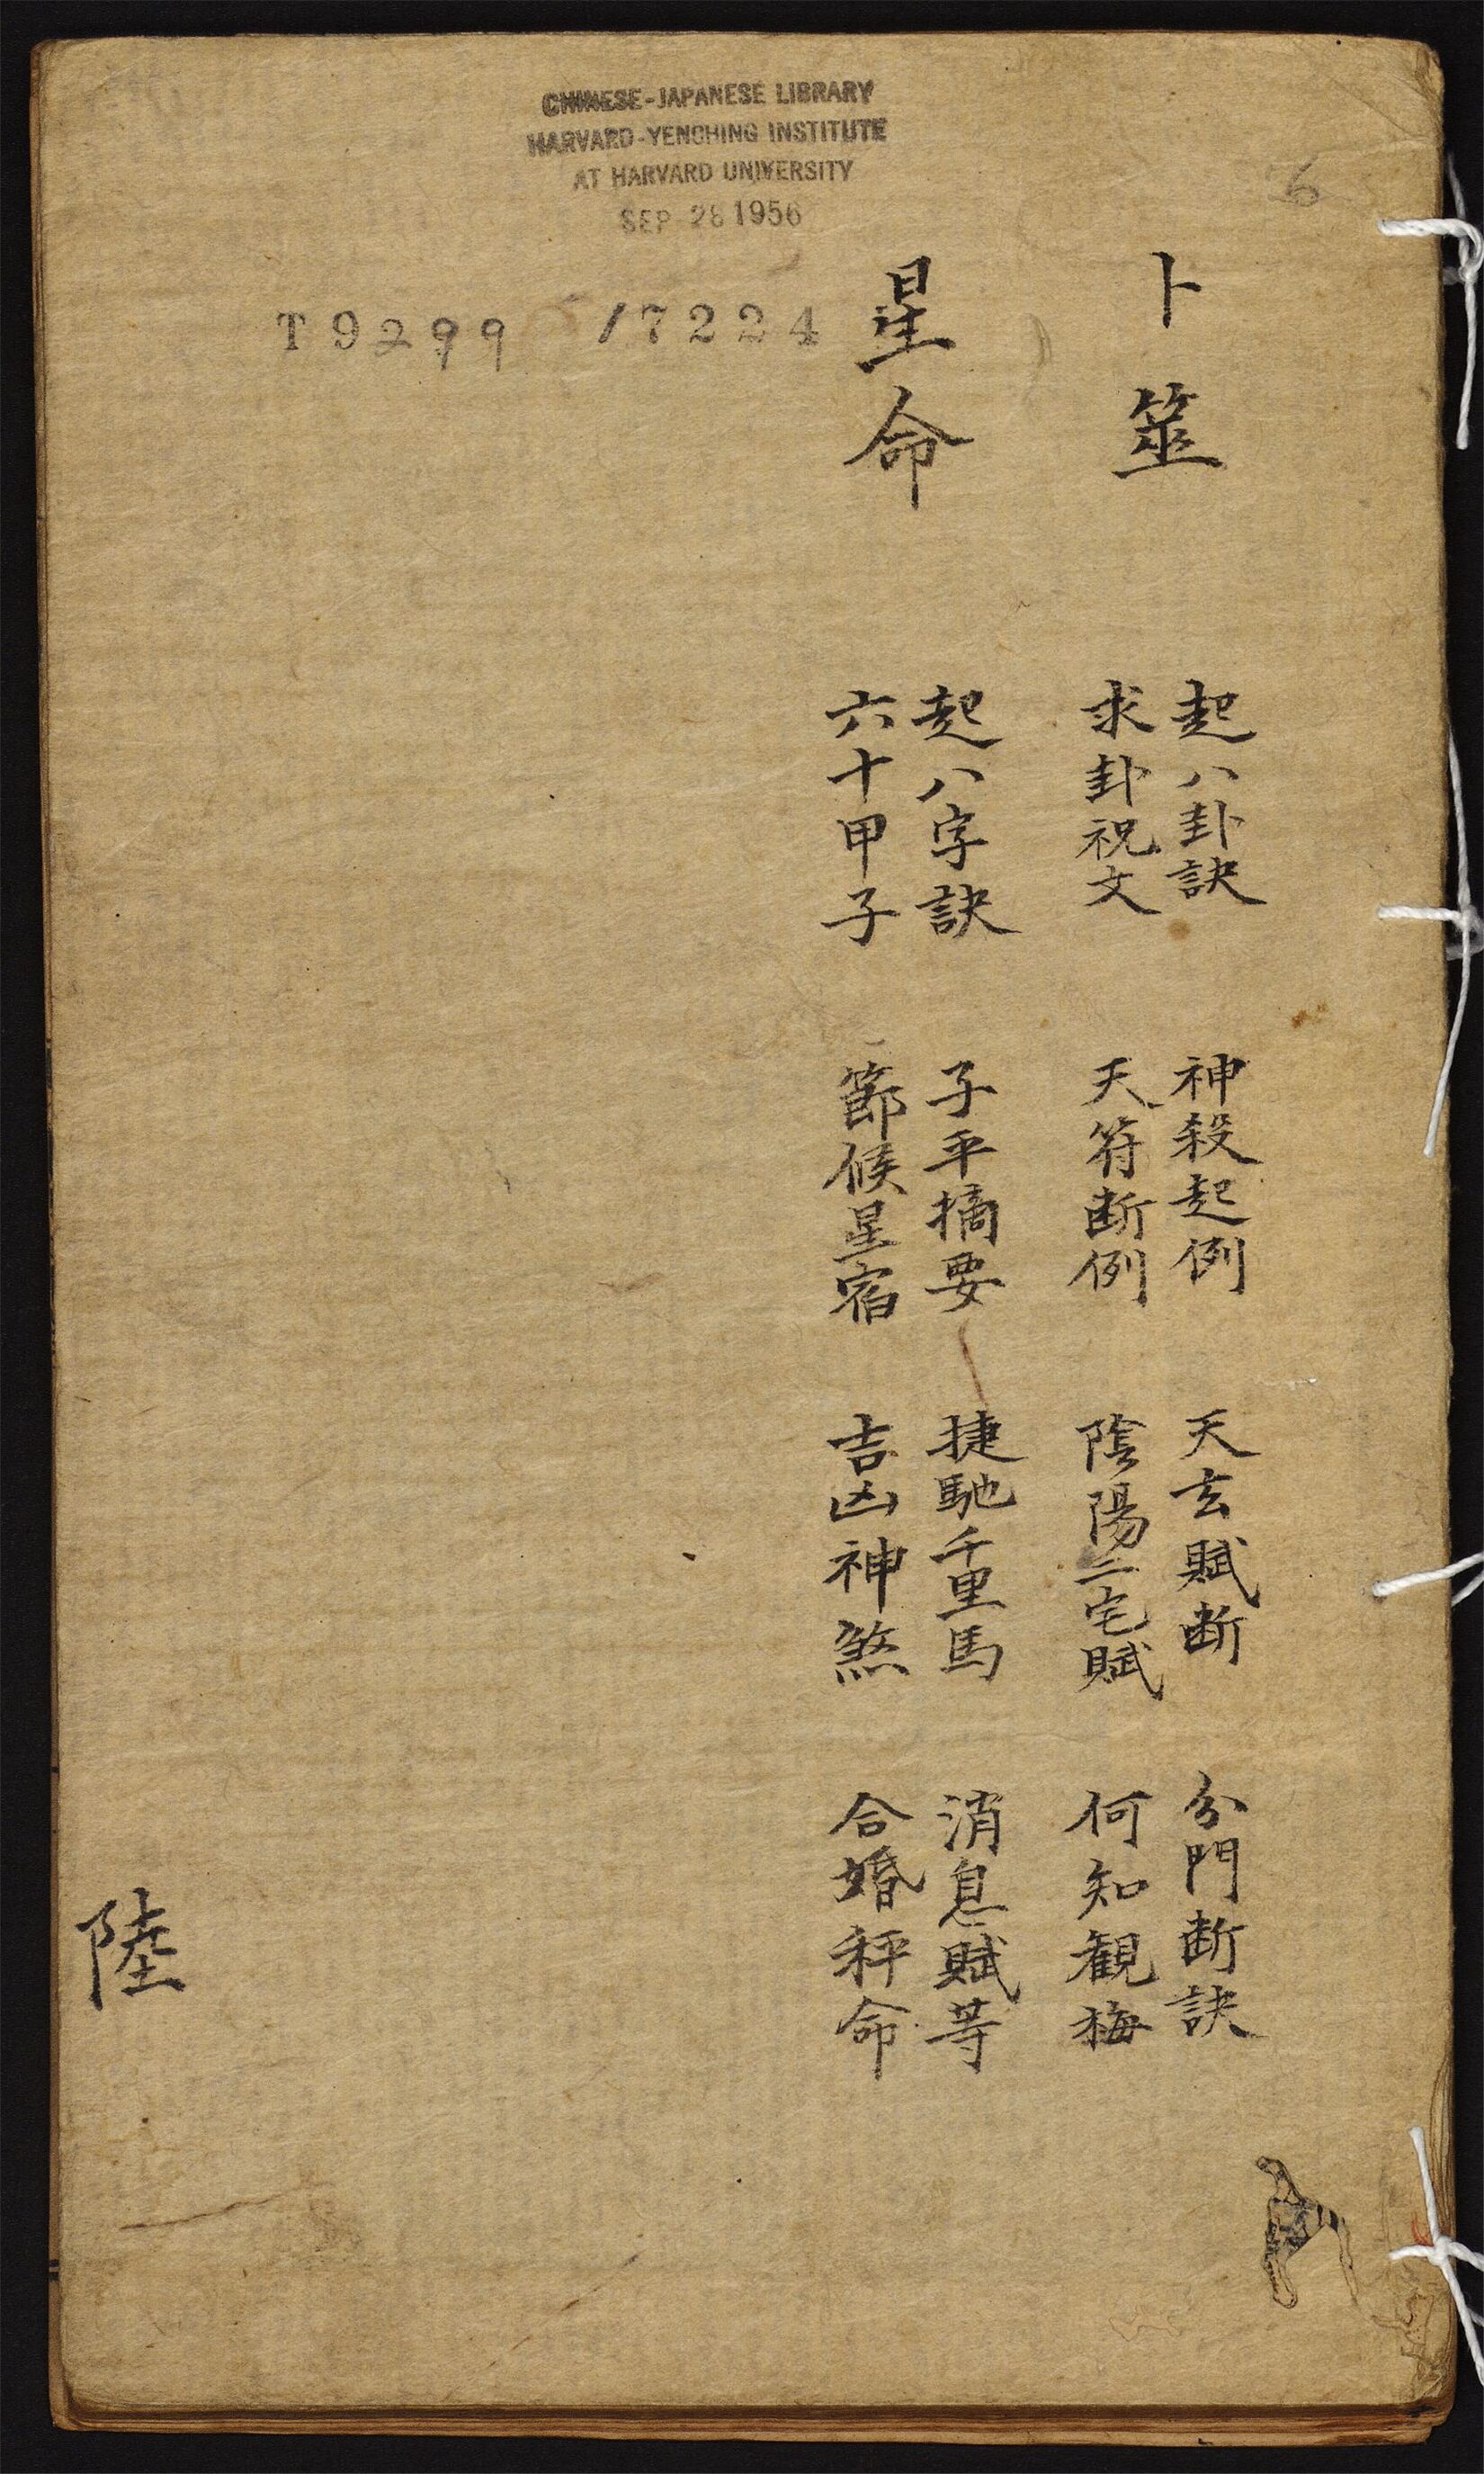 CHINESE-JAPANESE LIBRARY
HARVARD-YENCHING INSTITUTE
AT HARVARD UNIVERSITY
SEP 28 1956
6
T9299 /7224
卜筮
起八卦訣 神殺起例 天玄賦断 分門断訣
求卦祝文 天符断例 陰陽二宅賦 何知観梅
星命
起八字訣 子平摘要 捷馳千里馬 消息賦等
六十甲子 節候星宿 吉凶神煞 合婚秤命
陸